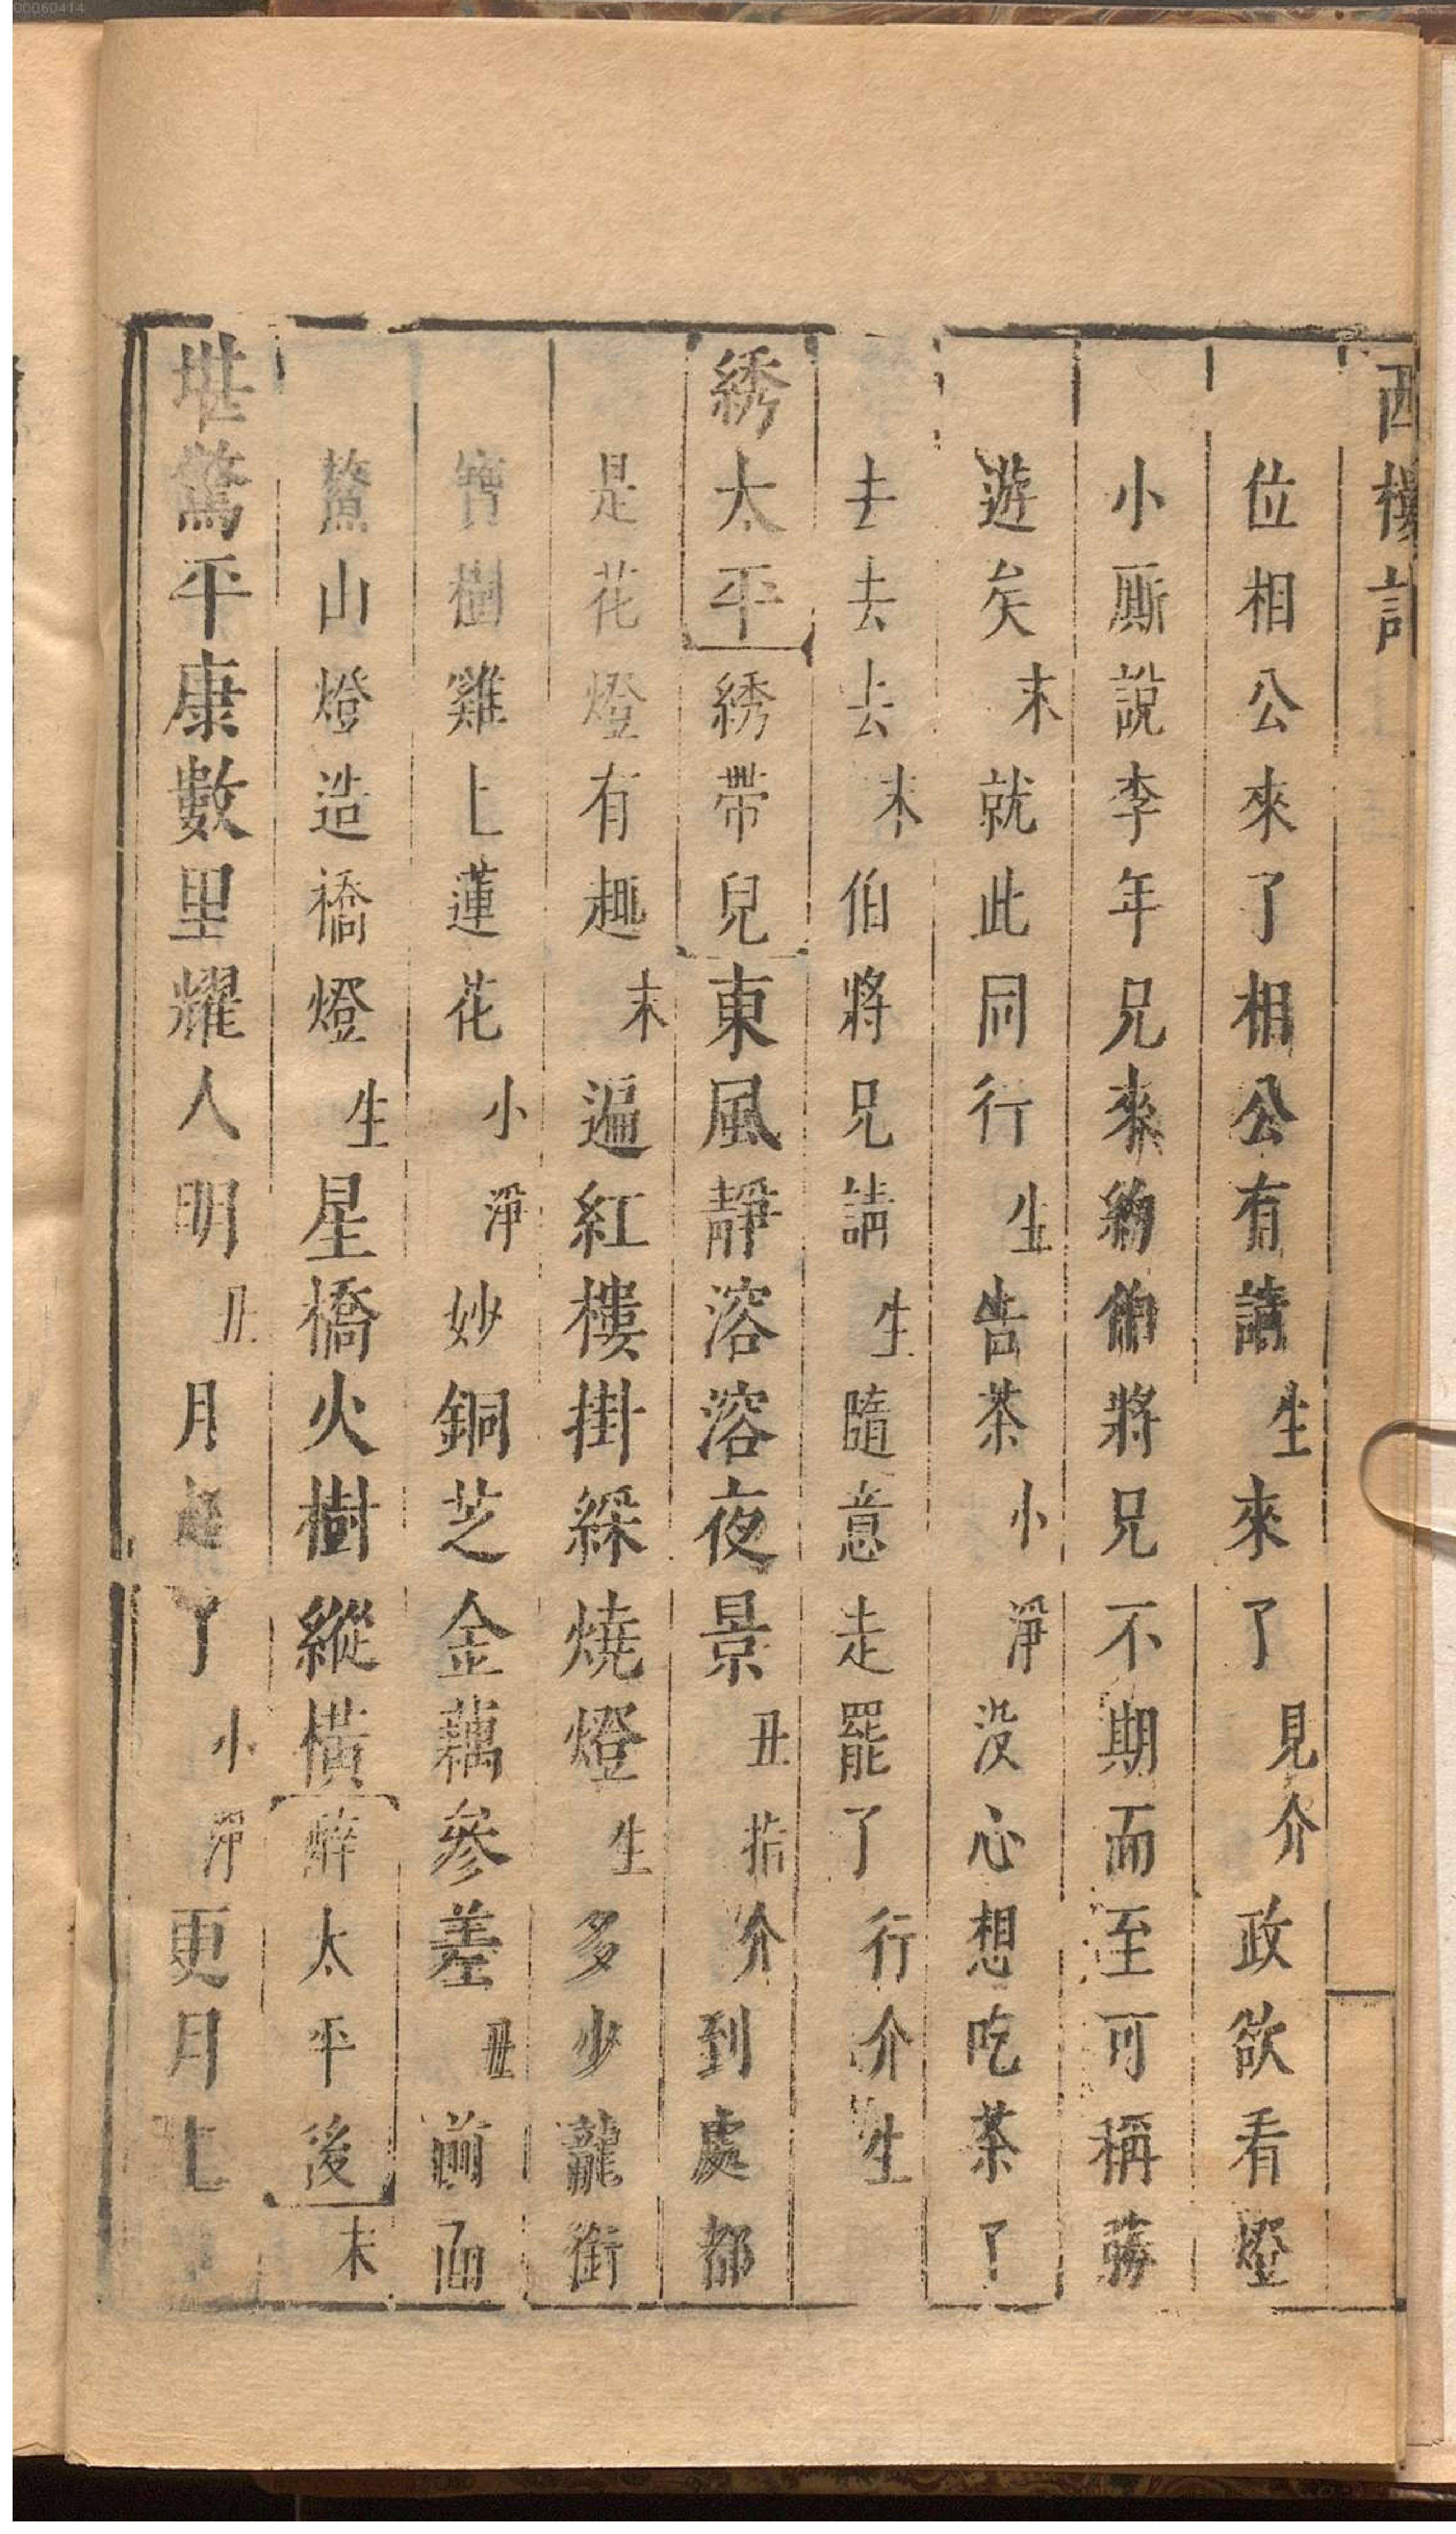 00060414
西樓記
位相公來了相公有請生來了見介政欲看燈
小厮說李年兄來約伯將兄不期而至可稱勝
遊矣末就此同行生告茶小淨没心想吃茶了
去去去末伯將兄請生隨意走罷了行介生
綉太平綉帶兒東風靜溶溶夜景丑指介到處都
是花燈有趣末遍紅樓掛綵燒燈生多少龍銜
寶樹雞上蓮花小淨妙銅芝金藕參差丑前面
鰲山燈造橋燈生星橋火樹縱橫醉太平後末
堪驚平康數里耀人明丑月起了小淨更月上